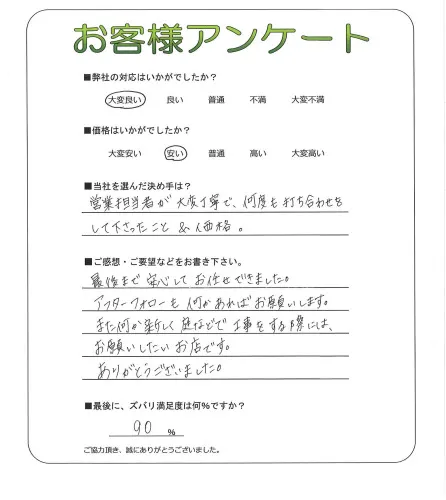 お客様アンケート
■弊社の対応はいかがでしたか？
大変良い 良い 普通 不満 大変不満
■価格はいかがでしたか？
大変安い 安い 普通 高い 大変高い
■当社を選んだ決め手は？
営業担当者が大変丁寧で、何度も打ち合わせを
して下さったこと & 価格。
■ご感想・ご要望などをお書き下さい。
最後まで安心してお任せできました。
アフターフォローも何かあればお願いします。
また何か新しく庭などで工事をする際には、
お願いしたいお店です。
ありがとうございました。
■最後に、ズバリ満足度は何%ですか？
90 %
ご協力頂き、誠にありがとうございました。